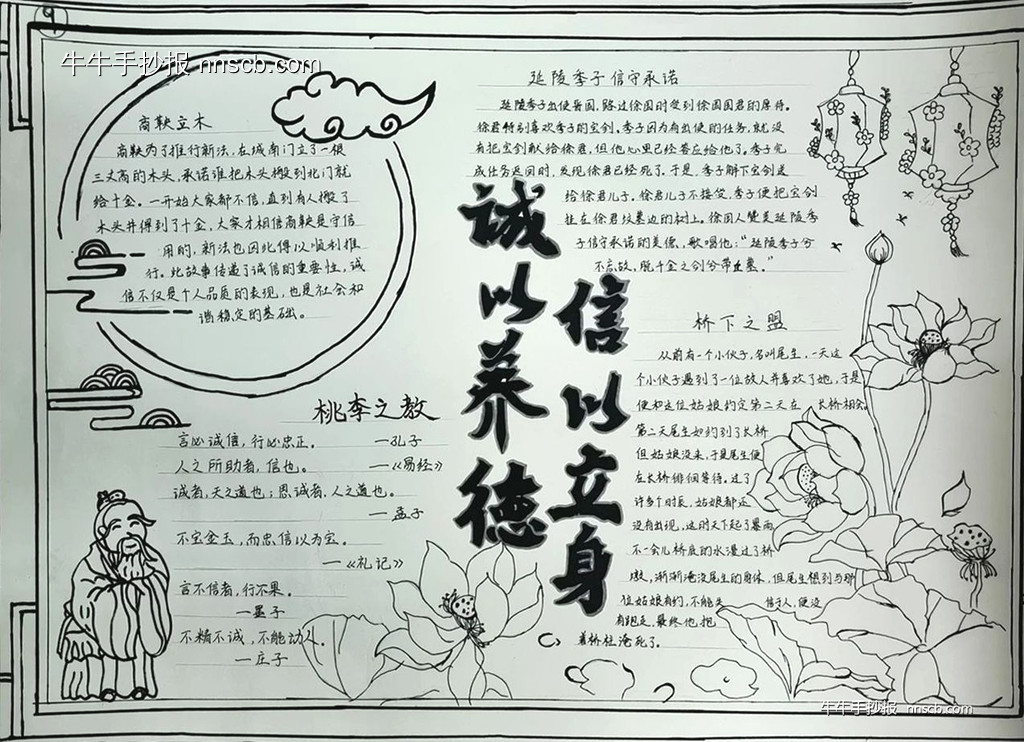 9
牛牛手抄报 nnscb.com
商鞅立木
商鞅为了推行新法,在城南门立了一根
三丈高的木头,承诺谁把木头搬到北门就
给十金。一开始大家都不信,直到有人搬了
木头并得到了十金,大家才相信商鞅是守信
用的,新法也因此得以顺利推
行。此故事传递了诚信的重要性,诚
信不仅是个人品质的表现,也是社会和
谐稳定的基础。
桃李之教
言必诚信,行必忠正。 —孔子
人之所助者,信也。 —《易经》
诚者,天之道也;思诚者,人之道也。
—孟子
不宝金玉,而忠信以为宝。
—《礼记》
言不信者,行不果。
—墨子
不精不诚,不能动人。
—庄子
誠以养德
信以立身
延陵季子信守承诺
延陵季子出使晋国,路过徐国时受到徐国国君的厚待。
徐君特别喜欢季子的宝剑。季子因为有出使的任务,就没
有把宝剑献给徐君,但他心里已经答应给他了。季子完
成任务返回时,发现徐君已经死了。于是,季子解下宝剑送
给徐君儿子,徐君儿子不接受,季子便把宝剑
挂在徐君坟墓边的树上。徐国人赞美延陵季
子信守承诺的美德,歌唱他:“延陵季子兮
不忘故,脱千金之剑兮带丘墓。”
桥下之盟
从前有一个小伙子,名叫尾生,一天这
个小伙子遇到了一位故人并喜欢了她,于是
便和这位姑娘约定第二天在 长桥相会。
第二天尾生如约到了长桥
但姑娘没来,于是尾生便
在长桥徘徊等待。过了
许多个时辰,姑娘都还
没有出现,这时天下起了暴雨,
不一会儿桥底的水漫过了桥
墩,渐渐淹没尾生的身体,但尾生想到与那
位姑娘有约,不能失 信于人,便没
有跑走,最终他,抱
着桥柱淹死了。
牛牛手抄报 nnscb.com